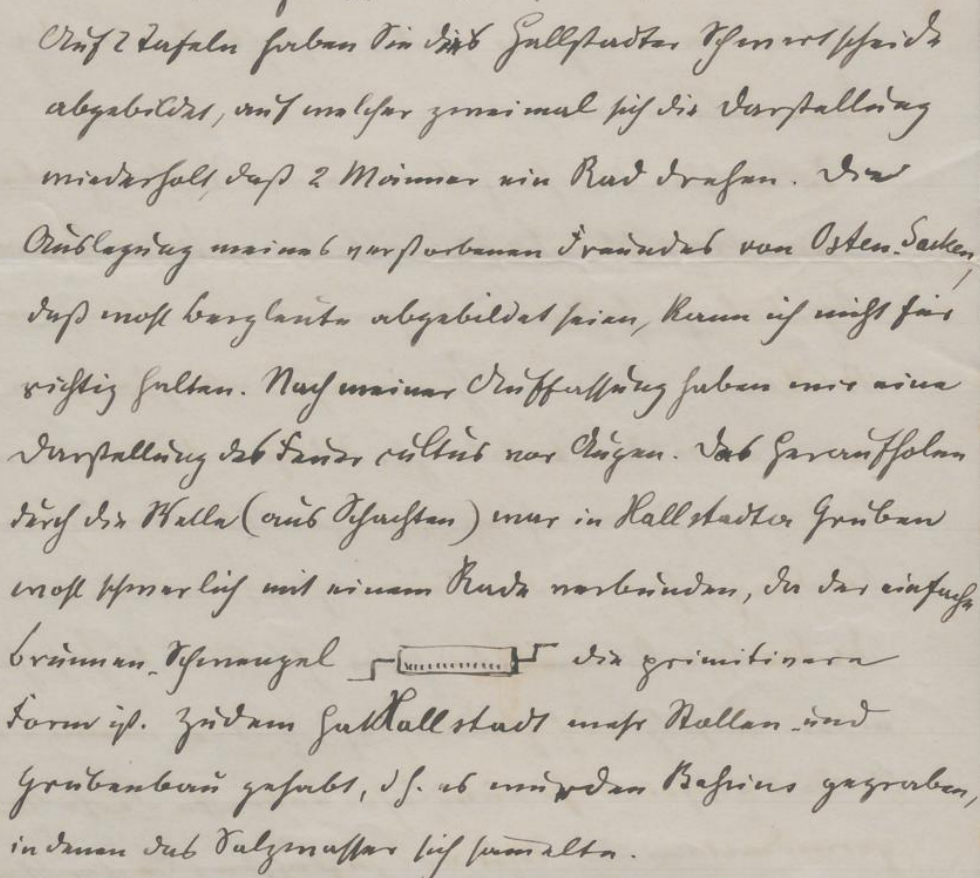 Auf 2 Tafeln haben Sie die Hallstadter Schwertscheide
abgebildet, auf welcher zweimal sich die Darstellung
wiederholt, daß 2 Männer ein Rad drehen. Die
Auslegung meines verstorbenen Freundes von Osten-Sacken,
daß wohl Bergleute abgebildet seien, kann ich nicht für
richtig halten. Nach meiner Auffassung haben wir eine
Darstellung des Feuer cultus vor Augen. Das Heraufholen
durch die Welle (aus Schachten) war in Hallstadter Gruben
wohl schwerlich mit einem Rade verbunden, da der einfache
Brunnen-Schwengel die primitivere
Form ist. Zudem hat Hallstadt mehr Stollen- und
Grubenbau gehabt, d h. es wurden Bassins gegraben,
in denen das Salzwasser sich sam̄elte.